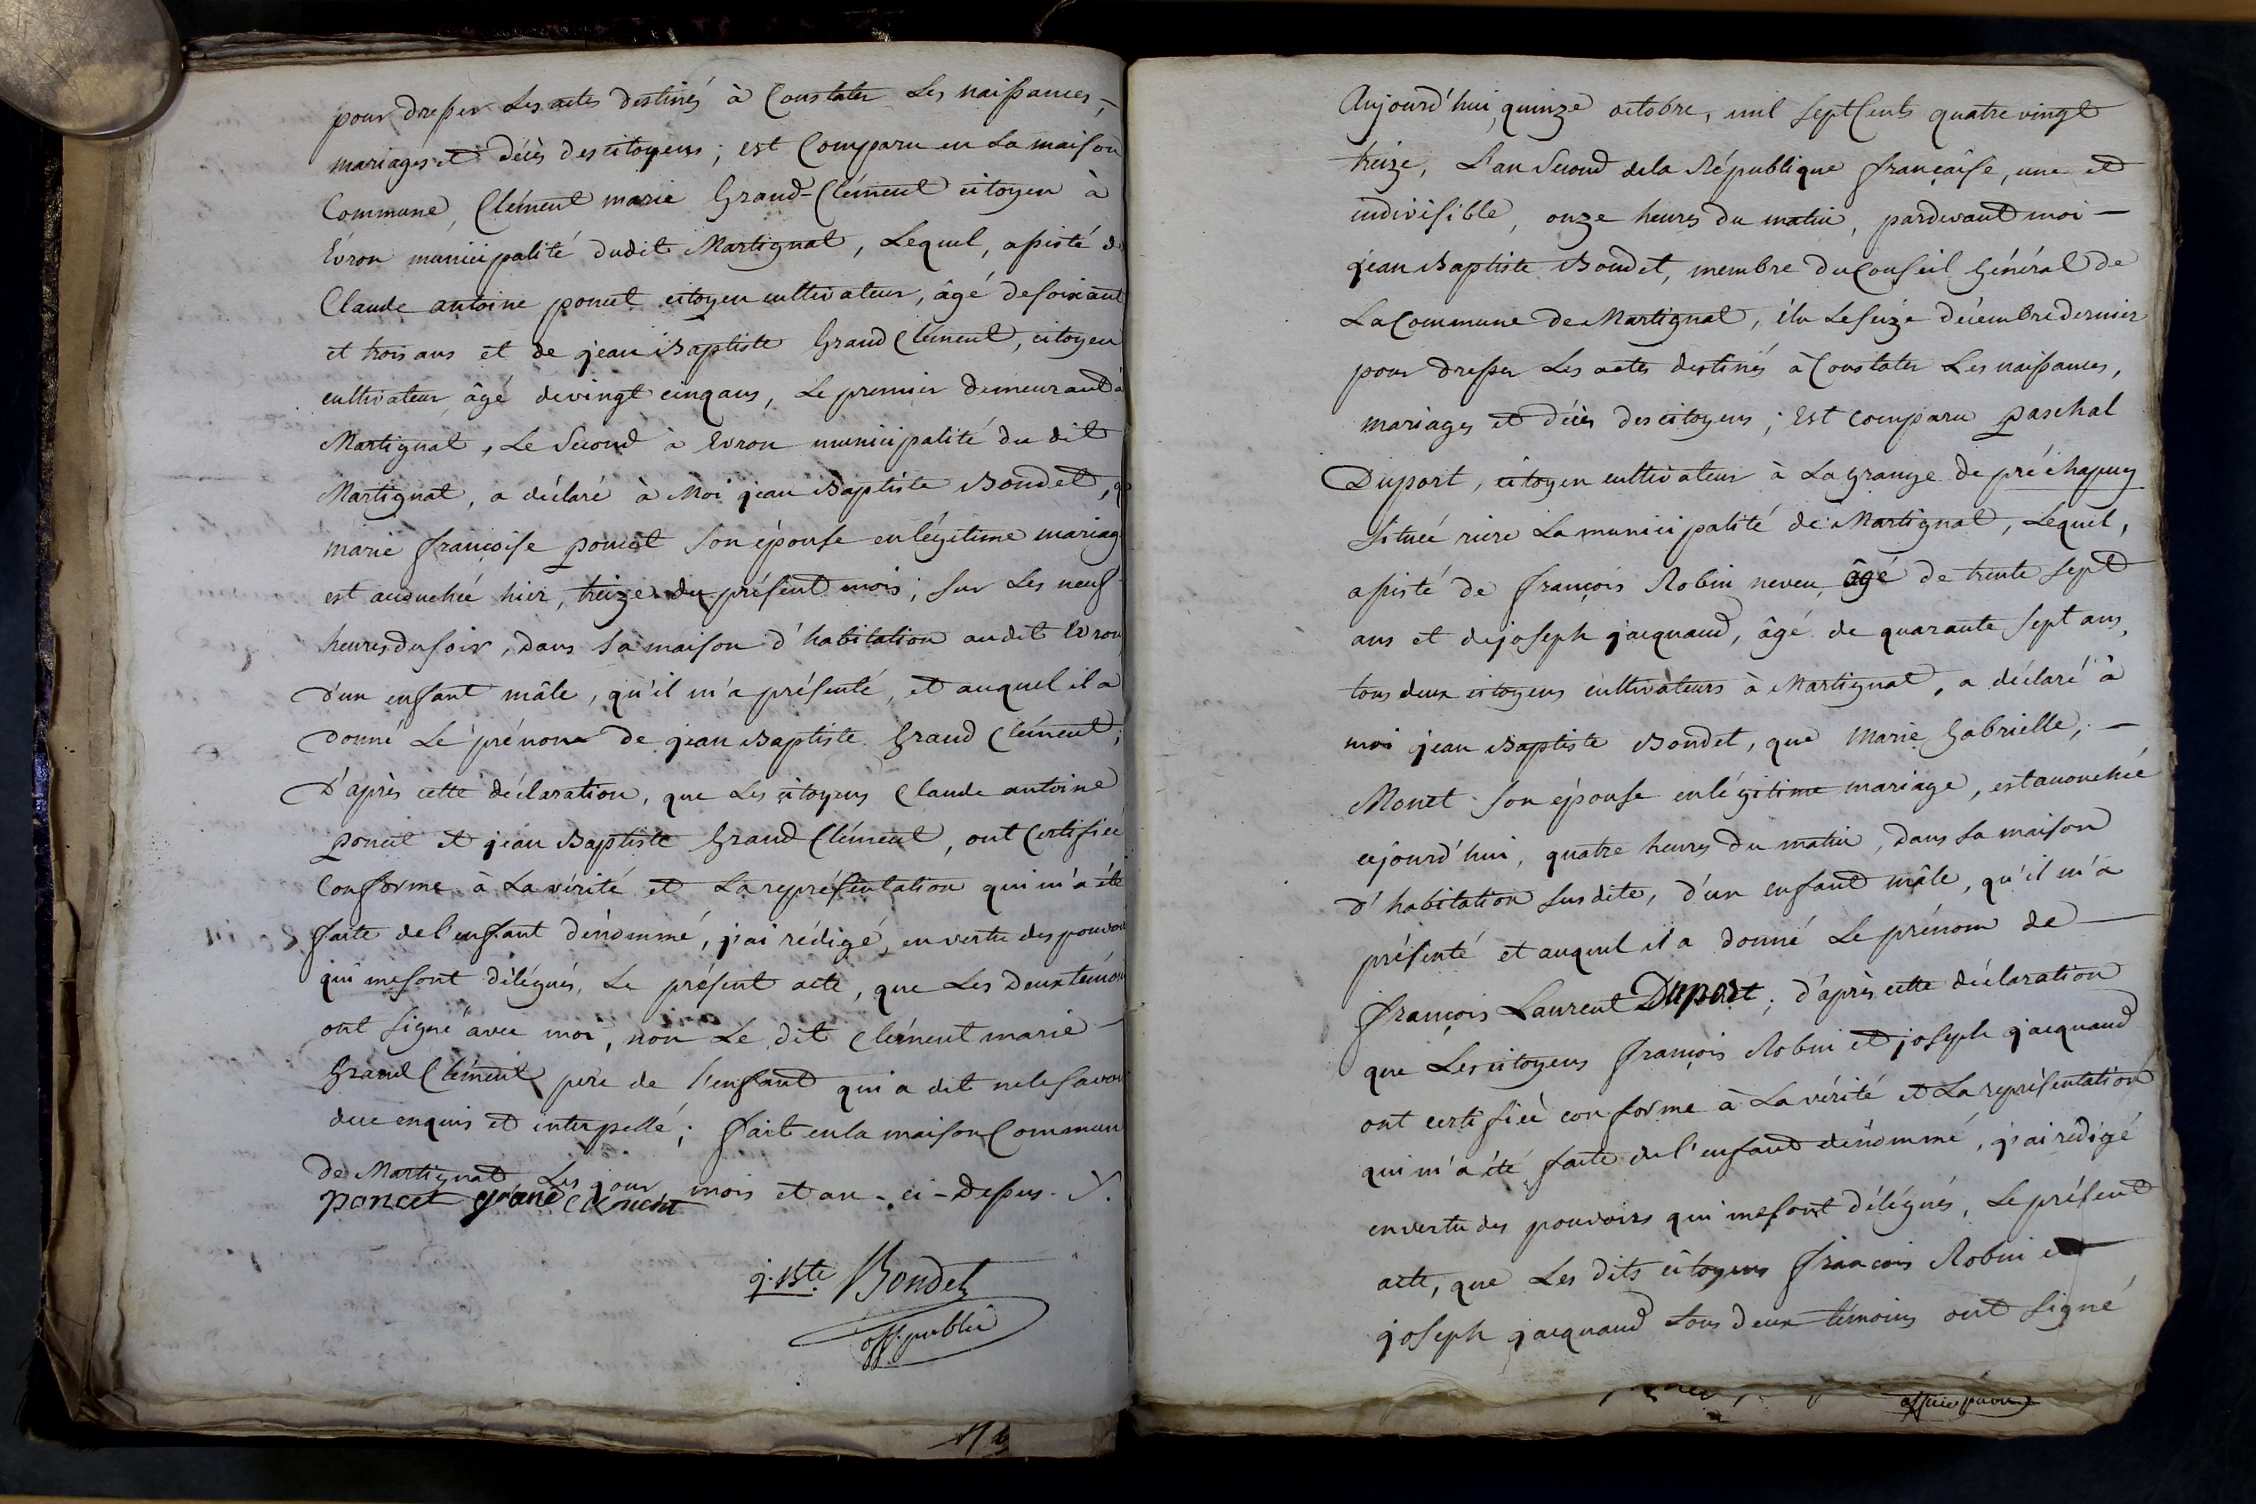 pour dresser Les actes destinés à Constater Les naissances, -
mariages et décès des citoyens ; est Comparu en La maison
Commune, Clément marie Grand-Clément citoyen à
Evron municipalité dudit Martignat, Lequel, assisté de
Claude antoine poncet citoyen cultivateur, âgé de soixante
et trois ans et de jean Baptiste Grand Clément, citoyen
cultivateur, âgé de vingt cinq ans, Le premier demeurant à
Martignat, Le Second à Evron municipalité du dit
Martignat, a déclaré à Moi jean Baptiste Bondet, q
marie françoise poncet son épouse en légitime mariag
est accouchée hier, treize du présent mois ; sur Les neuf
heures du soir, dans sa maison d'habitation audit Evron
D'un enfant mâle, qu'il m'a présenté, et auquel il a
donné Le prénom de jean Baptiste Grand Clément ;
D'après cette déclaration, que Les citoyens Claude antoine
poncet et jean Baptiste Grand Clément, ont Certifiée
Conforme à La vérité et La représentation qui m'a été
faite de l'enfant dénommé, j'ai rédigé, en vertu des pouvoi
qui me sont délégués, Le présent acte, que Les deux témoi
ont signé avec moi, non Le dit Clément marie -
Grand Clément pere de l'enfant qui a dit ne le savoir
due enquis et interpellé ; fait en la maison Commun
De Martignat Les jour mois et an - ci - Dessus.
poncet grand Clement
j. Bte. Bondet
off. public
Aujourd'hui, quinze octobre, mil sept Cents quatre vingt
treize, L'an Second de la République française, une et
indivisible, onze heures du matin, pardevant moi -
jean Baptiste Bondet, membre du Conseil Général de
La Commune de Martignat, élu Le seize décembre dernier
pour dresser Les actes destinés à Constater Les naissances,
mariages et décès des citoyens ; Est comparu paschal
Duport, citoyen cultivateur à La grange de préchapuy
Située riere La municipalité de Martignat, Lequel,
assisté de françois Robin neveu, âgé de trente sept
ans et de joseph jacquaud, âgé de quarante sept ans,
tous deux citoyens cultivateurs à Martignat, a déclaré à
moi jean Baptiste Bondet, que Marie Gabrielle, -
Monet son épouse en légitime mariage, est accouchée
cejourd'hui, quatre heures du matin, dans sa maison
d'habitation susdite, d'un enfant mâle, qu'il m'a
présenté et auquel il a donné Le prénom de -
françois Laurent Duport ; d'après cette déclaration
que Les citoyens françois Robin et joseph jacquaud
ont certifiée conforme à La vérité et La représentation
qui m'a été faite de l'enfant dénommé, j'ai rédigé
en vertu des pouvoirs qui me sont délégués, Le présent
acte, que Les dits citoyens françois Robin et
joseph jacquaud tous deux témoins ont signé